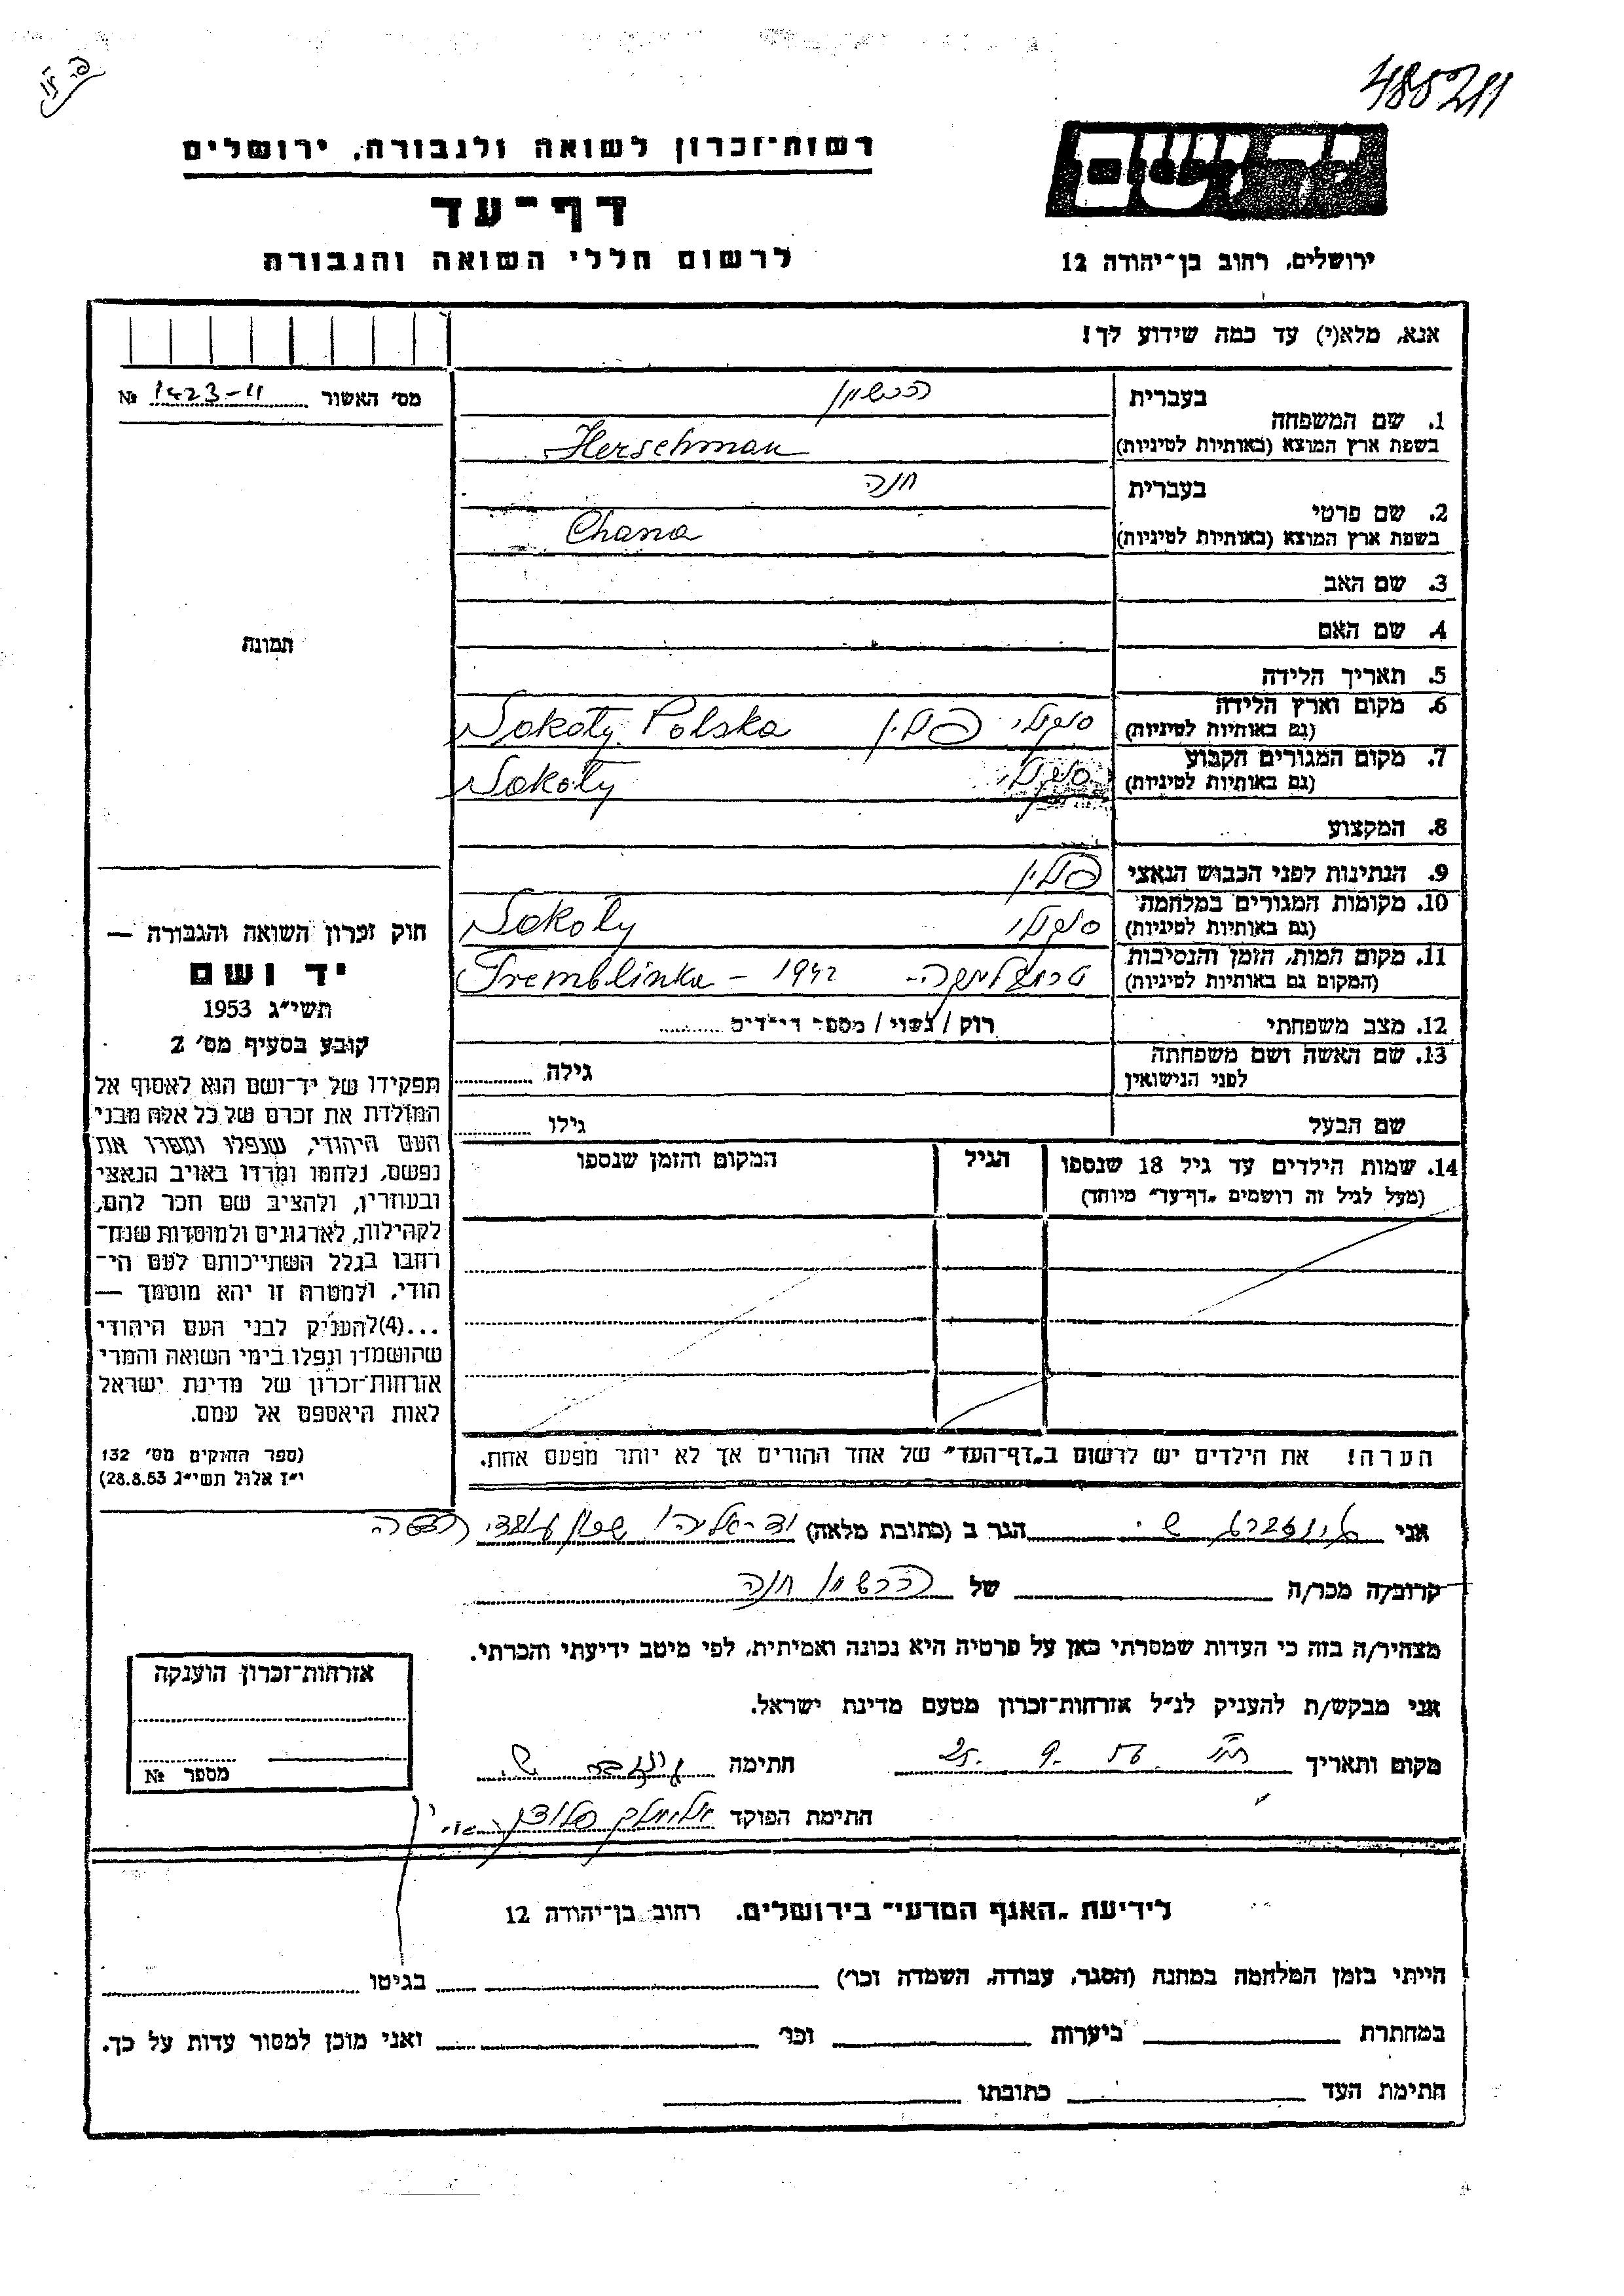 488211
רשות־זכרון לשואה ולגבורה, ירושלים
יד ושם
דף־עד
לרשום חללי השואה והגבורה
ירושלים, רחוב בן־יהודה 12
אנא, מלא(י) עד כמה שידוע לך!
מס׳ האשור 1423-11 №
בעברית הרשמן
1. שם המשפחה
בשפת ארץ המוצא (באותיות לטיניות) Herschman
בעברית חנה
2. שם פרטי
בשפת ארץ המוצא (באותיות לטיניות) Chana
3. שם האב
4. שם האם
תמונה
5. תאריך הלידה
6. מקום וארץ הלידה סוקולי פולין Sokoły Polska
(גם באותיות לטיניות)
7. מקום המגורים הקבוע סוקולי Sokoły
(גם באותיות לטיניות)
8. המקצוע
9. הנתינות לפני הכבוש הנאצי פולין
10. מקומות המגורים במלחמה סוקולי Sokoły
(גם באותיות לטיניות)
11. מקום המות, הזמן והנסיבות טרמבלינקה - Tremblinka - 1942
(המקום גם באותיות לטיניות)
12. מצב משפחתי רוק / נשוי / מספר הילדים
13. שם האשה ושם משפחתה גילה
לפני הנישואין
שם הבעל גילו
14. שמות הילדים עד גיל 18 שנספו הגיל המקום והזמן שנספו
(מעל לגיל זה רושמים „דף־עד״ מיוחד)
חוק זכרון השואה והגבורה —
יד ושם
תשי״ג 1953
קובע בסעיף מס׳ 2
תפקידו של יד־ושם הוא לאסוף אל
המולדת את זכרם של כל אלה מבני
העם היהודי, שנפלו ומסרו את
נפשם, נלחמו ומרדו באויב הנאצי
ובעוזריו, ולהציב שם וזכר להם,
לקהילות, לארגונים ולמוסדות שנח־
רבו בגלל השתייכותם לעם הי־
הודי, ולמטרה זו יהא מוסמך —
...(4) להעניק לבני העם היהודי
שהושמדו ונפלו בימי השואה והמרי
אזרחות־זכרון של מדינת ישראל
לאות היאספם אל עמם.
(ספר החוקים מס׳ 132
י״ז אלול תשי״ג 28.8.53)
הערה! את הילדים יש לרשום ב„דף־העד״ של אחד ההורים אך לא יותר מפעם אחת.
אני ש. הגר ב (כתובת מלאה)
קרוב/ה מכר/ה של הרשמן חנה
מצהיר/ה בזה כי העדות שמסרתי כאן על פרטיה היא נכונה ואמיתית, לפי מיטב ידיעתי והכרתי.
אני מבקש/ת להעניק לנ״ל אזרחות־זכרון מטעם מדינת ישראל.
מקום ותאריך 25. 9. 56 חתימה
חתימת הפוקד
אזרחות־זכרון הוענקה
מספר №
לידיעת „האגף המדעי״ בירושלים, רחוב בן־יהודה 12
הייתי בזמן המלחמה במחנה (הסגר, עבודה, השמדה וכו׳) בגיטו
במחתרת ביערות וכו׳ ואני מוכן למסור עדות על כך.
חתימת העד כתובתו